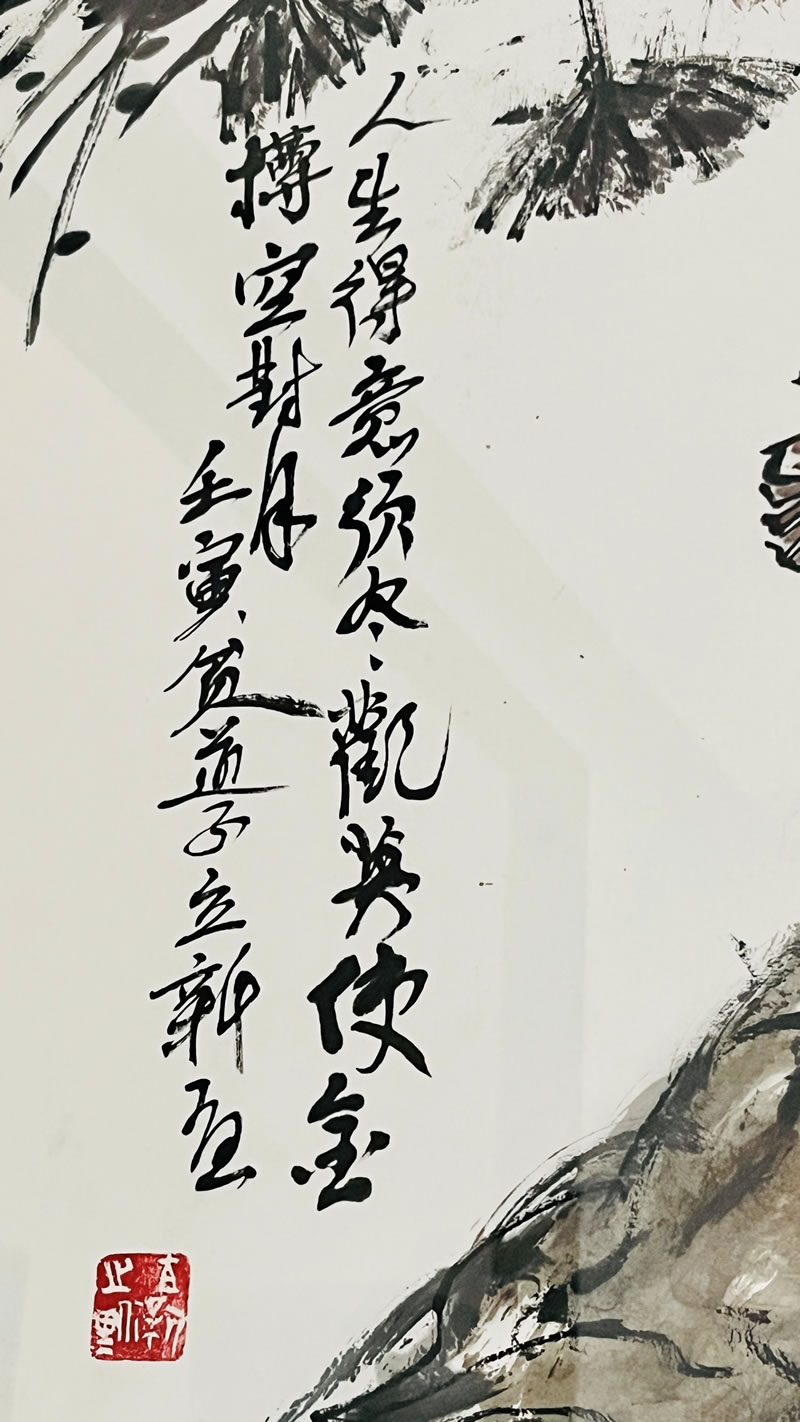 人生得意须尽觀莫使金
樽空對月
壬寅貧道子立新画